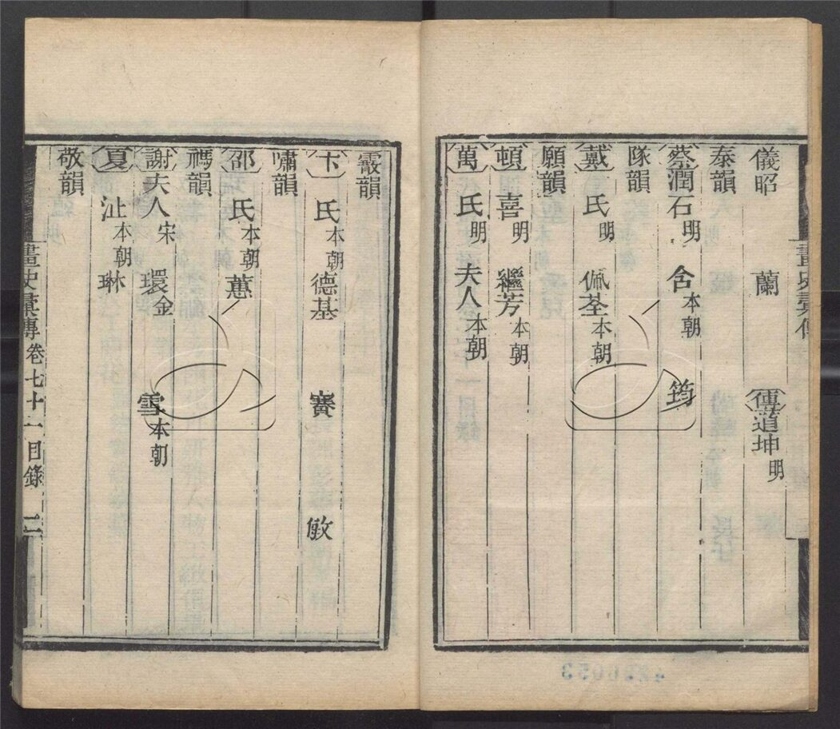 儀昭 蘭 傅道坤明
泰韻
蔡潤石明 含本朝 筠
隊韻
戴氏明 佩荃本朝
願韻
頓喜明 繼芳本朝
萬氏明 夫人本朝
霰韻
卞氏本朝 德基 賽 敏
嘯韻
邵氏本朝 蕙
禡韻
謝夫人宋 環金 雪本朝
夏沚本朝 琳
敬韻
畫史彙傳 卷七十一目錄 二